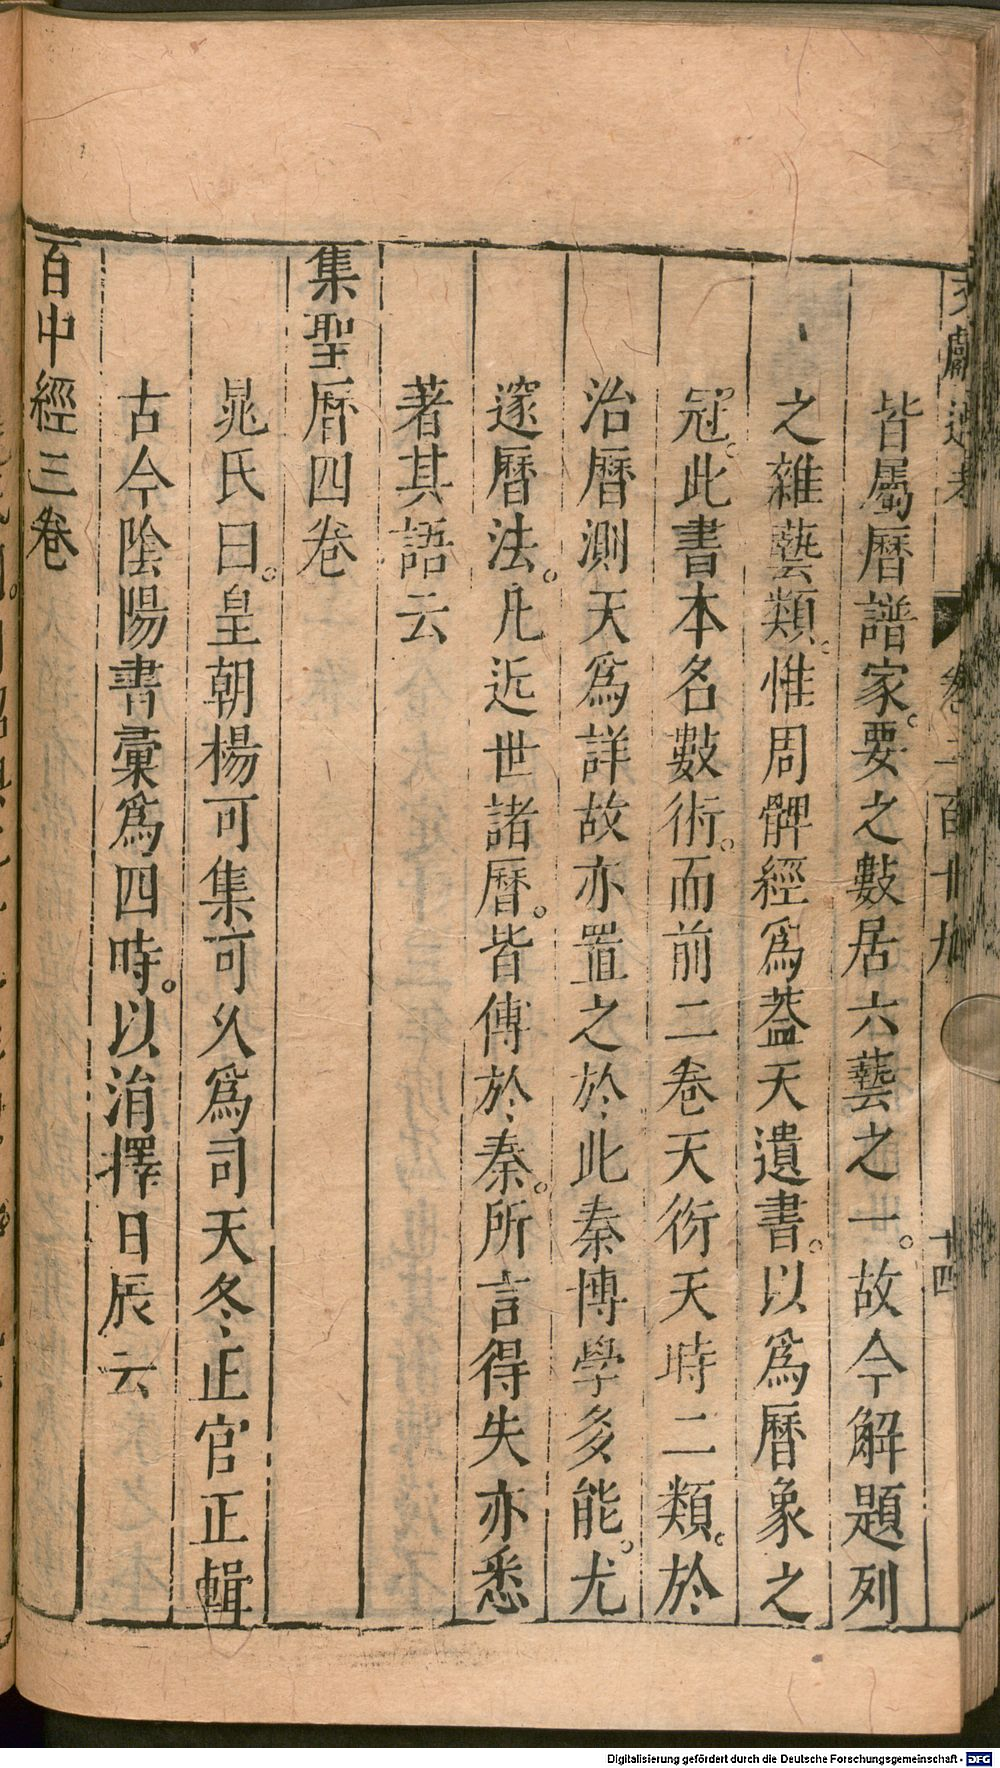 文獻通考 卷二百十九 十四
皆屬曆譜家。要之數居六藝之一。故今解題列
之雜藝類。惟周髀經爲蓋天遺書。以爲曆象之
冠。此書本名數術。而前二卷天衍天時二類。於
治曆測天爲詳故亦置之於此秦博學多能。尤
邃曆法。凡近世諸曆。皆傳於秦。所言得失亦悉
著其語云
集聖曆四卷
晁氏曰。皇朝楊可集可久爲司天冬正官正輯
古今陰陽書彙爲四時。以涓擇日辰云
百中經三卷
Digitalisierung gefördert durch die Deutsche Forschungsgemeinschaft - DFG